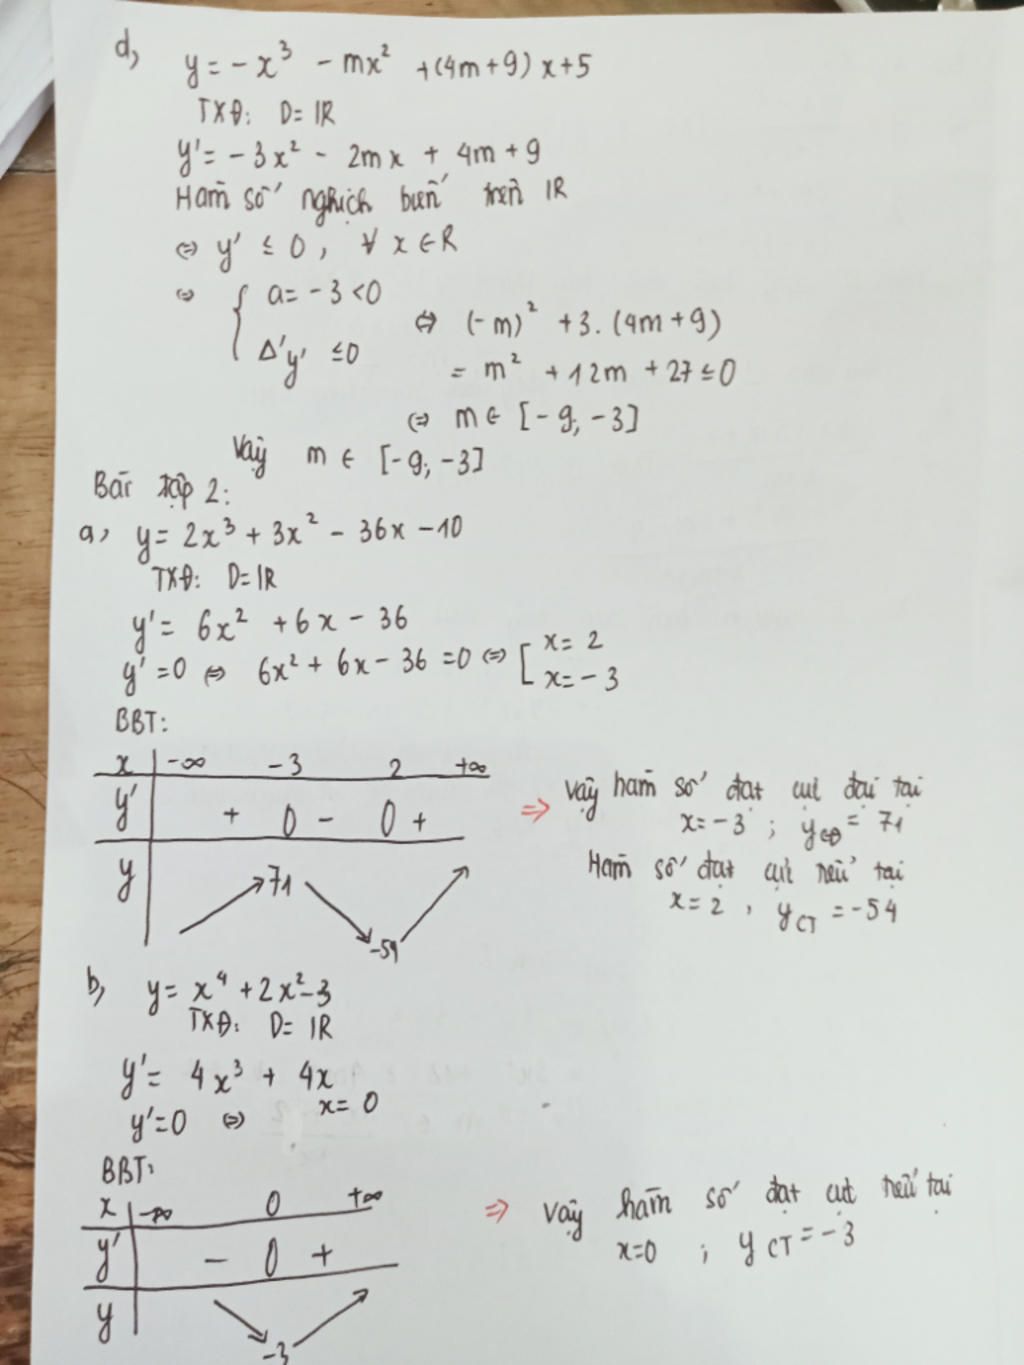 d, y = -x³ - mx² + (4m+9)x+5
TXĐ: D= IR
y' = -3x² - 2mx + 4m+9
Hàm số nghịch biến trên IR
⇔ y' ≤ 0, ∀ x ∈ R
⇔ { a= -3 <0
Δ'y' ≤0
⇔ (-m)² +3. (4m+9)
= m² +12m + 27 ≤ 0
⇔ m ∈ [-9; -3]
Vậy m ∈ [-9; -3]
Bài tập 2:
a, y= 2x³ + 3x² - 36x -10
TXĐ: D= IR
y' = 6x² +6x - 36
y' =0 ⇔ 6x² + 6x - 36 =0 ⇔ [ x= 2
x= -3
BBT:
x -∞ -3 2 +∞
y' + 0 - 0 +
y 71 -54
⇒ Vậy hàm số đạt cực đại tại
x= -3 ; yCĐ = 71
Hàm số đạt cực tiểu tại
x= 2 , yCT = -54
b, y= x⁴ +2x²-3
TXĐ: D= IR
y' = 4x³ + 4x
y'=0 ⇔ x= 0
BBT:
x -∞ 0 +∞
y' - 0 +
y -3
⇒ Vậy hàm số đạt cực tiểu tại
x=0 ; yCT = -3